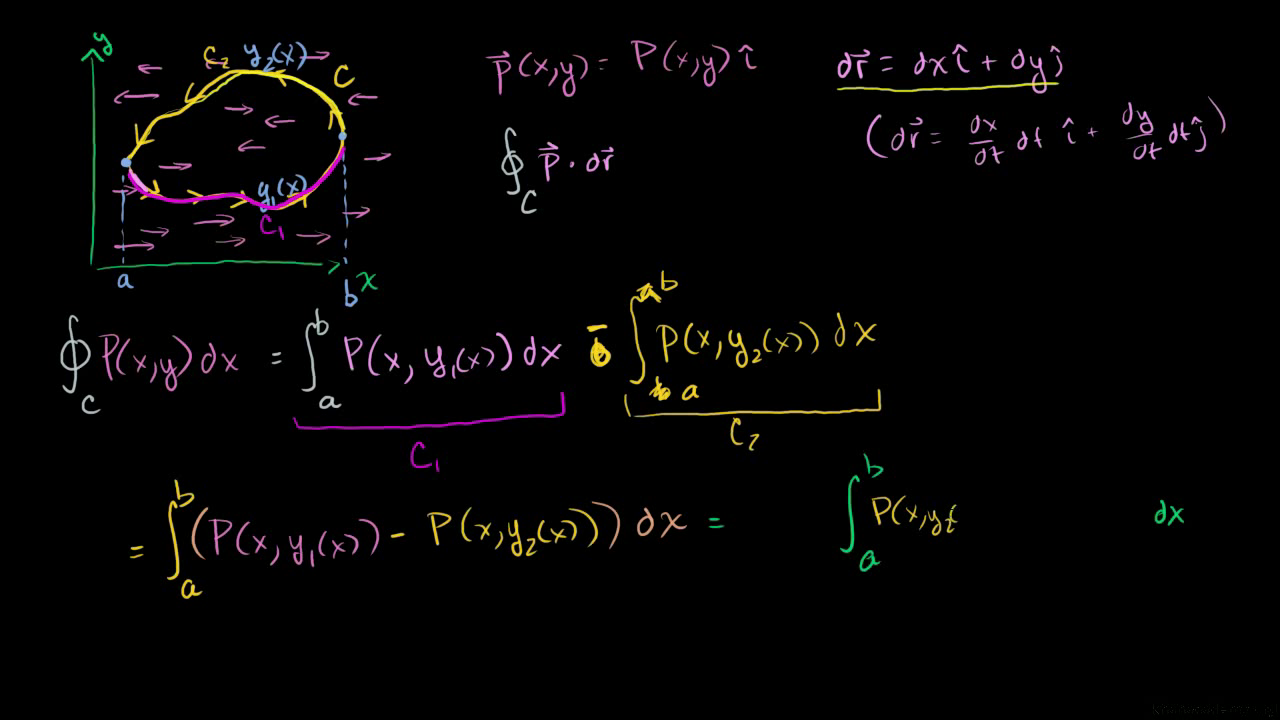 y
C₂ y₂(x) C
y₁(x)
C₁
a b x
P⃗(x,y) = P(x,y) î
dr⃗ = dx î + dy ĵ
(dr⃗ = dx/dt dt î + dy/dt dt ĵ)
∮_C P⃗ · dr⃗
∮_C P(x,y) dx = ∫_a^b P(x, y₁(x)) dx - ∫_a^b P(x, y₂(x)) dx
C₁ C₂
= ∫_a^b (P(x, y₁(x)) - P(x, y₂(x))) dx = ∫_a^b P(x,y dx